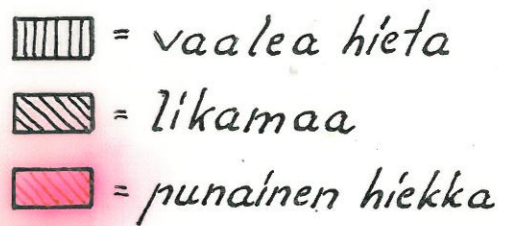 = vaalea hieta
= likamaa
= punainen hiekka